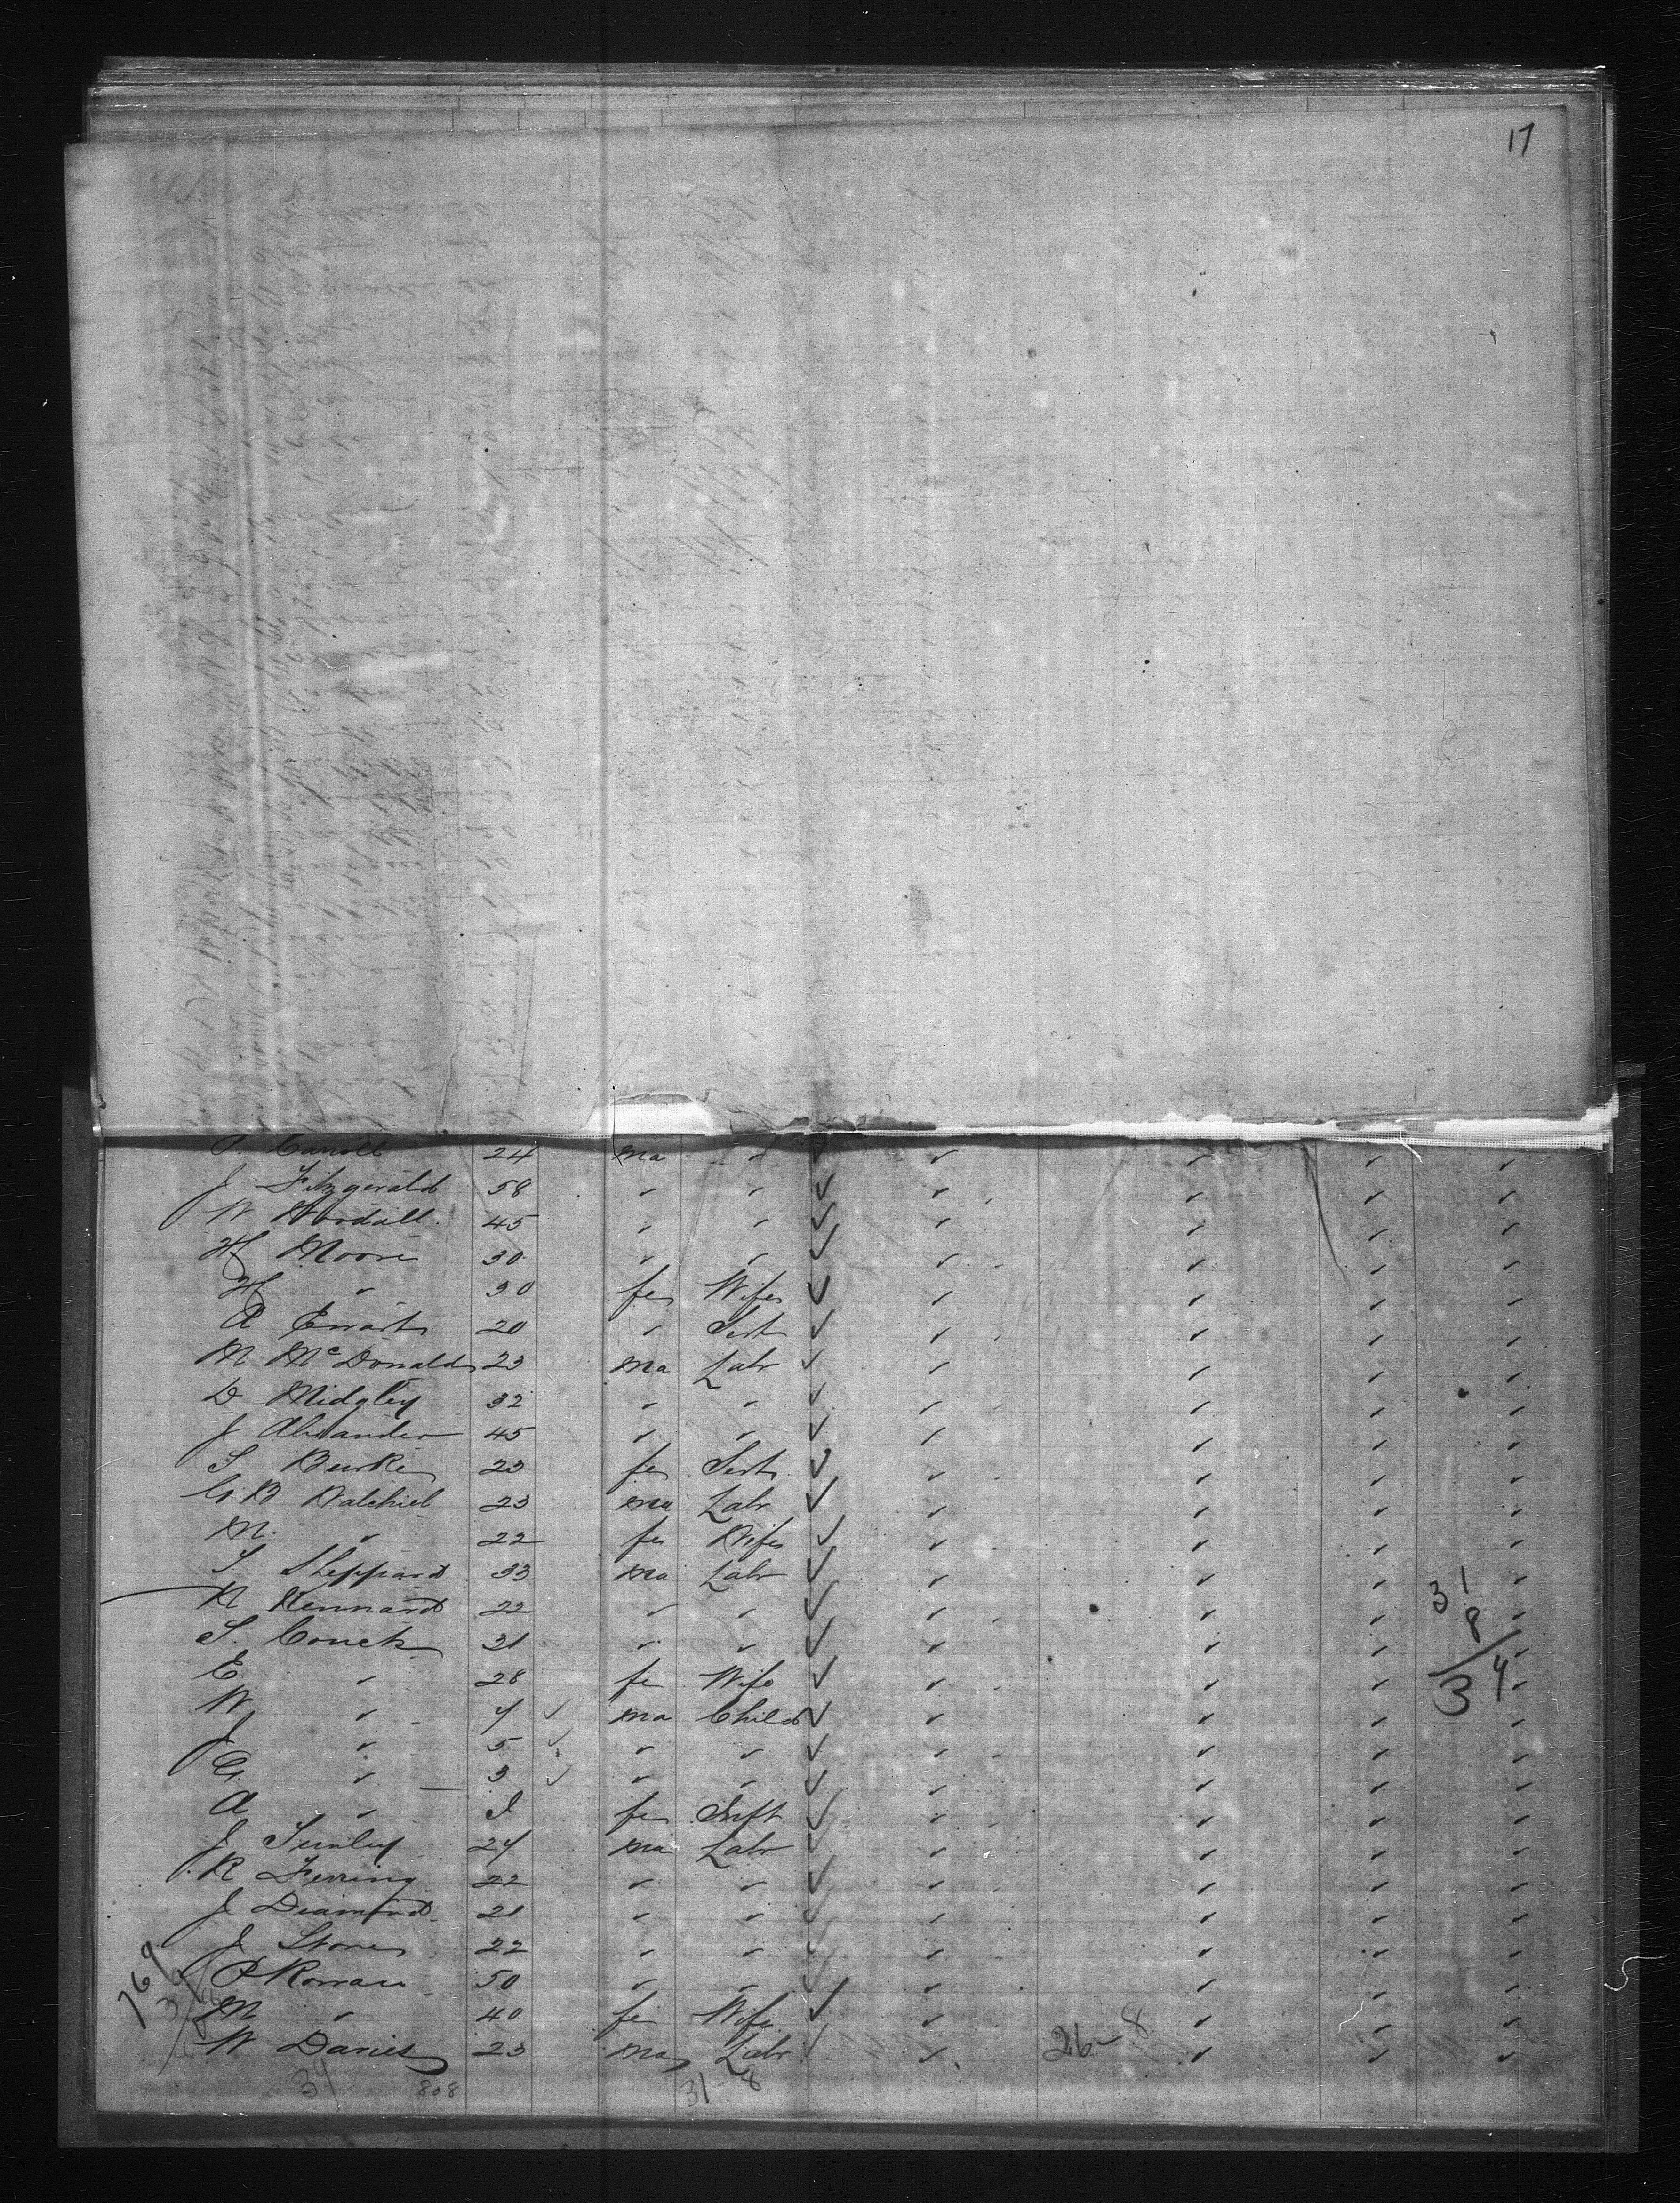 17
P. Carroll 24 ma ✓ ✓ ✓ ✓ ✓ ✓
J Fitzgerald 58 ✓ ✓ ✓ ✓ ✓ ✓ ✓
W Woodall 45 ✓ ✓ ✓ ✓ ✓ ✓ ✓
Hy Moore 30 ✓ ✓ ✓ ✓ ✓ ✓ ✓
Hy ✓ 30 fe Wife ✓ ✓ ✓ ✓ ✓
A Ewart 20 ✓ Servt ✓ ✓ ✓ ✓ ✓
M McDonald 23 ma Labr ✓ ✓ ✓ ✓ ✓
D Midgley 32 ✓ ✓ ✓ ✓ ✓ ✓ ✓
J Alexander 45 ✓ ✓ ✓ ✓ ✓ ✓ ✓
S Burke 23 fe Servt ✓ ✓ ✓ ✓ ✓
G B 23 ma Labr ✓ ✓ ✓ ✓ ✓
M. ✓ 22 fe Wife ✓ ✓ ✓ ✓ ✓
S Sheppard 33 ma Labr ✓ ✓ ✓ ✓ ✓
Kennard 22 ✓ ✓ ✓ ✓ ✓ ✓ ✓
S. Couch 31 ✓ ✓ ✓ ✓ ✓ ✓ ✓
E ✓ 28 fe Wife ✓ ✓ ✓ ✓ ✓
W ✓ 7 ✓ ma Child ✓ ✓ ✓ ✓ ✓
J ✓ 5 ✓ ✓ ✓ ✓ ✓ ✓ ✓ ✓
G ✓ 3 ✓ ✓ ✓ ✓ ✓ ✓ ✓ ✓
A ✓ fe Inft ✓ ✓ ✓ ✓ ✓
J 24 ma Labr ✓ ✓ ✓ ✓ ✓
R Ferring 22 ✓ ✓ ✓ ✓ ✓ ✓ ✓
J Diamond 21 ✓ ✓ ✓ ✓ ✓ ✓ ✓
J Stone 22 ✓ ✓ ✓ ✓ ✓ ✓ ✓
P Rowan 50 ✓ ✓ ✓ ✓ ✓ ✓ ✓
M ✓ 40 fe Wife ✓ ✓ ✓ ✓ ✓
W Davies 23 ma Labr ✓ ✓ ✓ ✓ ✓
31
8
34
769
26 - 8
34
808
31 8